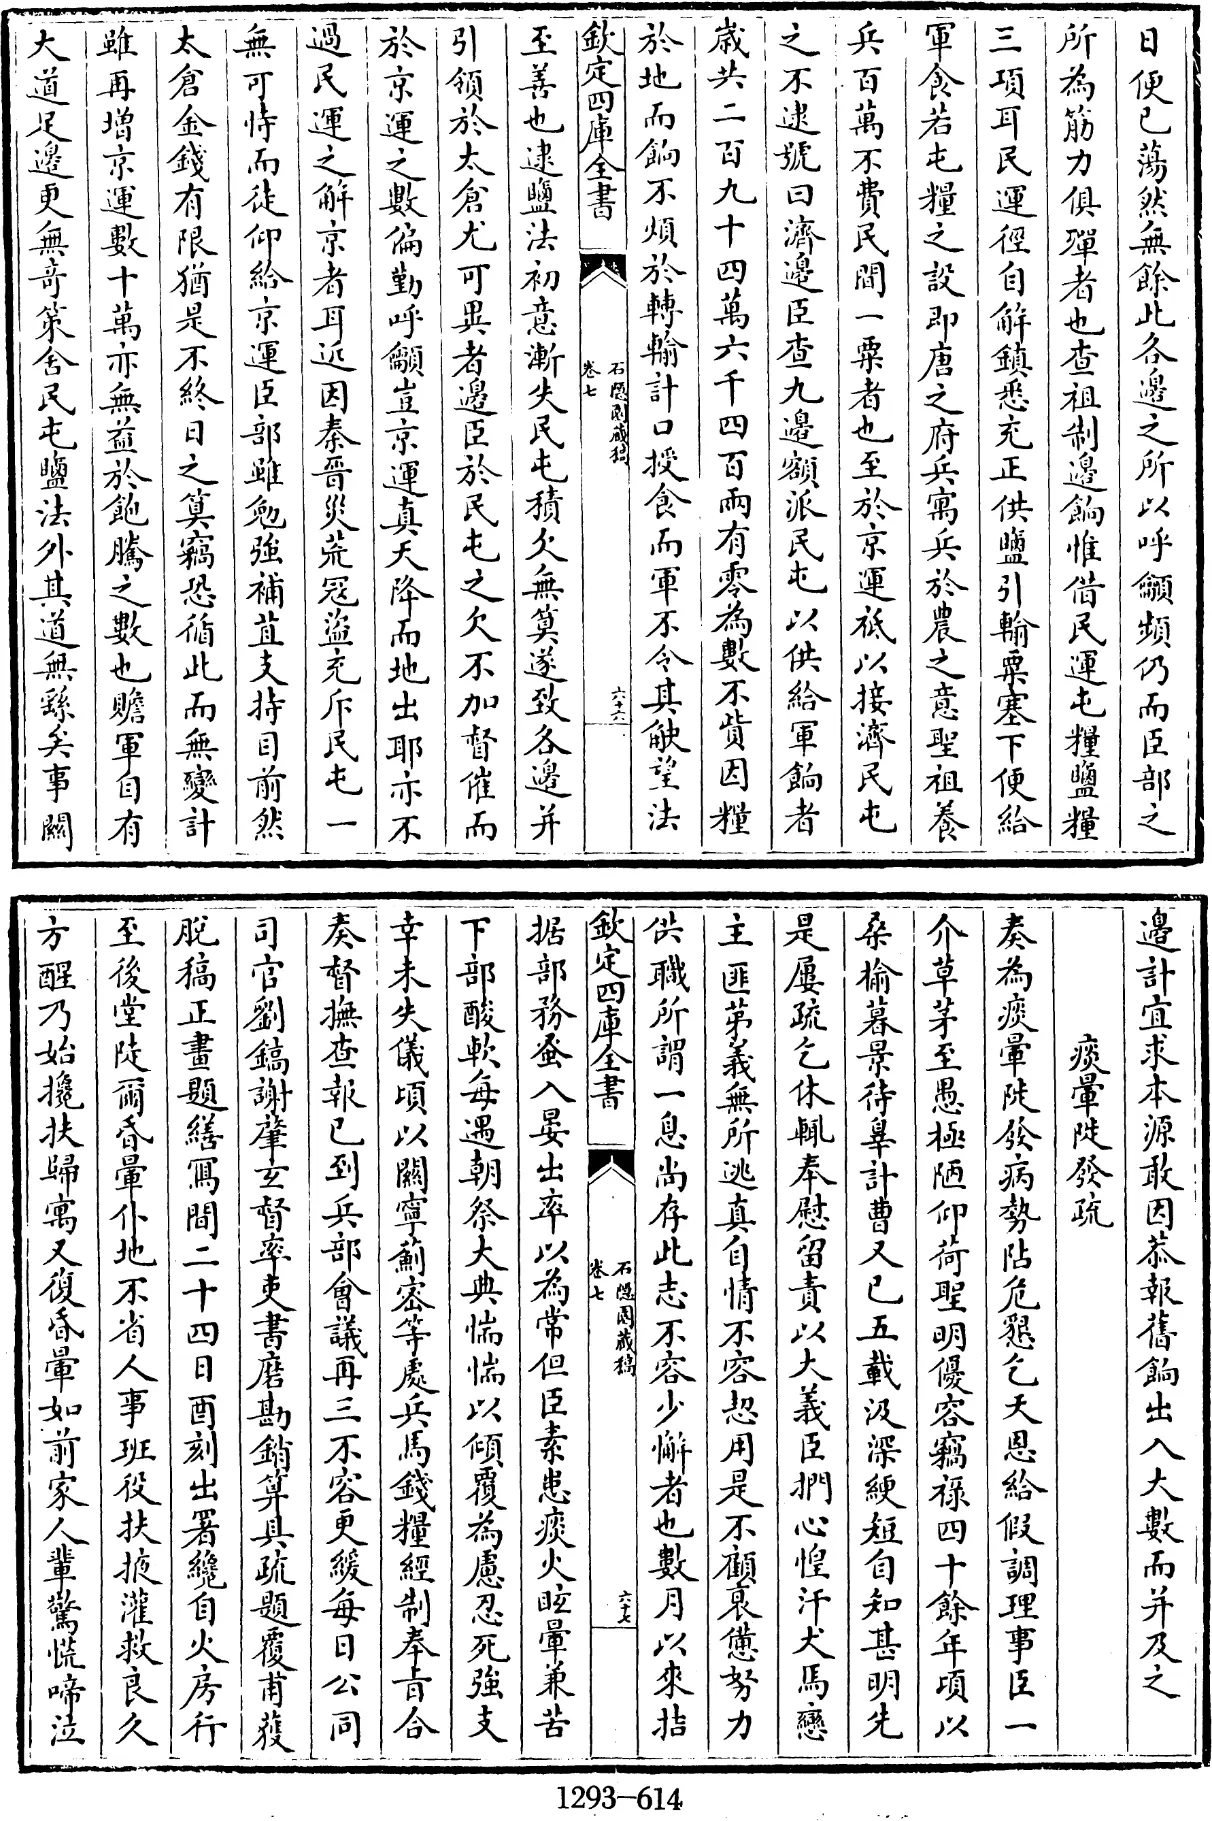 日便已蕩然無餘此各邊之所以呼籲頻仍而臣部之
所為筋力俱殫者也查祖制邊餉惟借民運屯糧鹽糧
三項耳民運徑自解鎮悉充正供鹽引輸粟塞下便給
軍食若屯糧之設即唐之府兵寓兵於農之意聖祖養
兵百萬不費民間一粟者也至於京運祗以接濟民屯
之不逮號曰濟邊臣查九邊額派民屯以供給軍餉者
歲共二百九十四萬六千四百兩有零為數不貲因糧
於地而餉不煩於轉輸計口授食而軍不令其觖望法
欽定四庫全書
石隱園藏稿
卷七
六十六
至善也逮鹽法初意漸失民屯積欠無算遂致各邊并
引領於太倉尤可異者邊臣於民屯之欠不加督催而
於京運之數偏勤呼籲豈京運真天降而地出耶亦不
過民運之解京者耳近因秦晉災荒冦盜充斥民屯一
無可恃而徒仰給京運臣部雖勉強補苴支持目前然
太倉金錢有限猶是不終日之算竊恐循此而無變計
雖再增京運數十萬亦無益於飽騰之數也贍軍自有
大道足邊更無奇策舍民屯鹽法外其道無繇矣事關
邊計宜求本源敢因恭報舊餉出入大數而并及之
痰暈陡發疏
奏為痰暈陡發病勢阽危懇乞天恩給假調理事臣一
介草茅至愚極陋仰荷聖明優容竊祿四十餘年頃以
桑榆暮景待辠計曹又已五載汲深綆短自知甚明先
是屢疏乞休輒奉慰留責以大義臣捫心惶汗犬馬戀
主匪茀義無所逃真自情不容恝用是不顧衰憊努力
供職所謂一息尚存此志不容少懈者也數月以來拮
欽定四庫全書
石隱園藏稿
卷七
六十七
据部務蚤入晏出率以為常但臣素患痰火眩暈兼苦
下部酸軟每遇朝祭大典惴惴以傾覆為慮忍死強支
幸未失儀頃以關寧薊密等處兵馬錢糧經制奉旨合
奏督撫查報已到兵部會議再三不容更緩每日公同
司官劉鎬謝肇玄督率吏書磨勘銷算具疏題覆甫蕿
脫稿正畫題繕寫間二十四日酉刻出署纔自火房行
至後堂陡爾昏暈仆地不省人事班役扶掖灌救良久
方醒乃始攙扶歸寓又復昏暈如前家人輩驚慌啼泣
1293-614